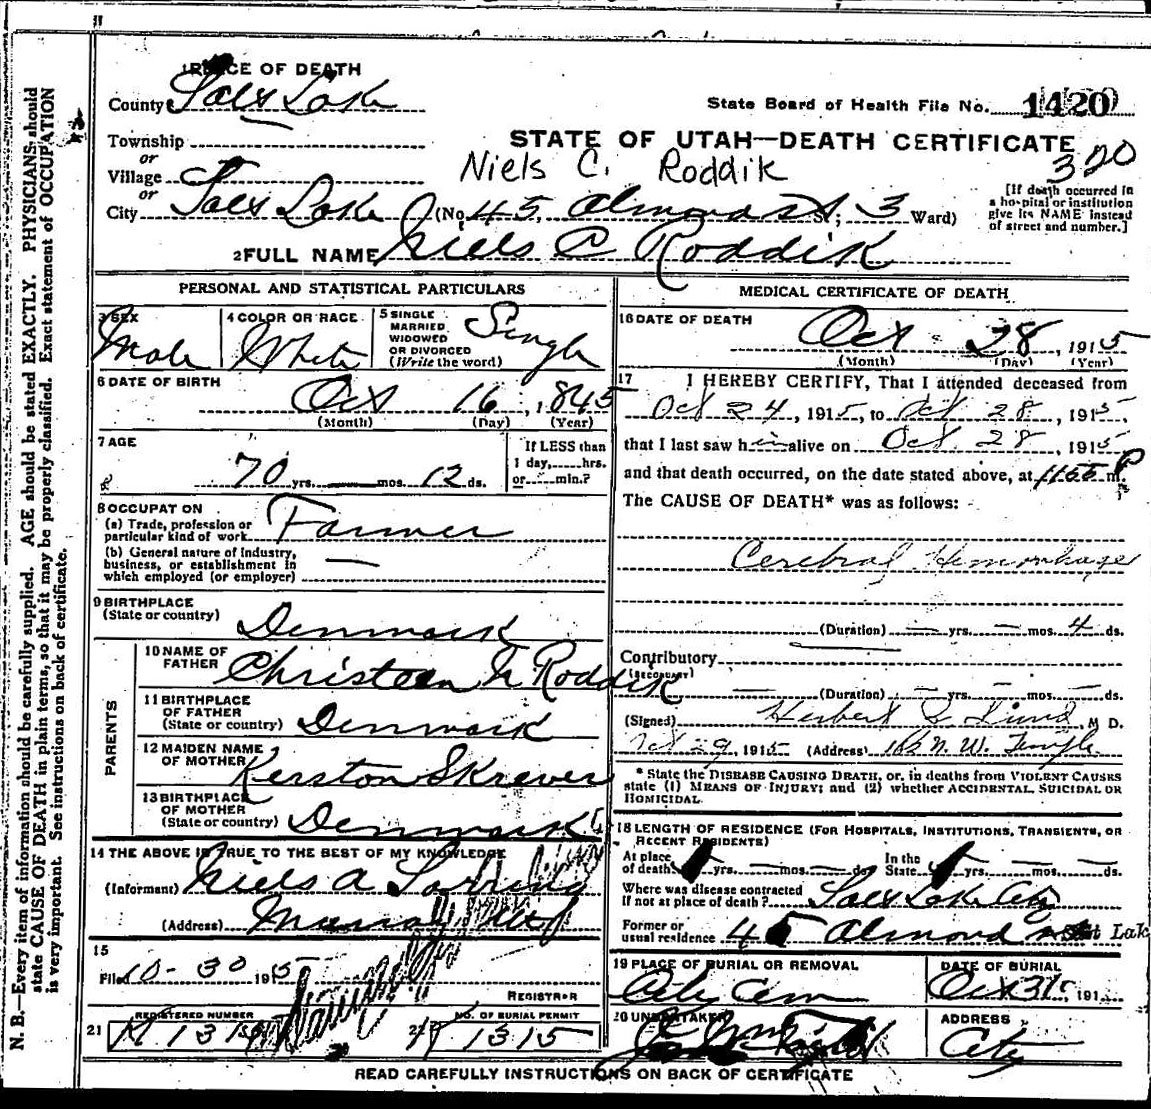 1 PLACE OF DEATH
County Salt Lake
State Board of Health File No. 1420
Township
or
STATE OF UTAH—DEATH CERTIFICATE
Village
Niels C. Roddik
320
or
City Salt Lake (No. 45, Almond St St; 3 Ward)
[If death occurred in
a hospital or institution
give its NAME instead
of street and number.]
2 FULL NAME Niels C Roddik
PERSONAL AND STATISTICAL PARTICULARS
3 SEX
Male
4 COLOR OR RACE
White
5 SINGLE
MARRIED
WIDOWED
OR DIVORCED
(Write the word)
Single
6 DATE OF BIRTH
Oct 16, 1845
(Month) (Day) (Year)
7 AGE
70 yrs. — mos. 12 ds.
If LESS than
1 day,......hrs.
or......min.?
8 OCCUPATION
(a) Trade, profession or
particular kind of work Farmer
(b) General nature of Industry,
business, or establishment in
which employed (or employer) —
9 BIRTHPLACE
(State or country)
Denmark
PARENTS
10 NAME OF
FATHER
Roddik
11 BIRTHPLACE
OF FATHER
(State or country) Denmark
12 MAIDEN NAME
OF MOTHER
Kerston Skrever
13 BIRTHPLACE
OF MOTHER
(State or country) Denmark
14 THE ABOVE IS TRUE TO THE BEST OF MY KNOWLEDGE
(Informant) Niels A
(Address) Murray Utah
15
Filed 10-30 1915
REGISTRAR
21 REGISTERED NUMBER
K 1315
22 NO. OF BURIAL PERMIT
K 1315
MEDICAL CERTIFICATE OF DEATH
16 DATE OF DEATH
Oct 28, 1915
(Month) (Day) (Year)
17 I HEREBY CERTIFY, That I attended deceased from
Oct 24, 1915, to Oct 28, 1915,
that I last saw him alive on Oct 28, 1915
and that death occurred, on the date stated above, at 1155 P m.
The CAUSE OF DEATH* was as follows:
Cerebral Hemorrhage
(Duration) — yrs. — mos. 4 ds.
Contributory
(SECONDARY)
(Duration) — yrs. — mos. — ds.
(Signed) Herbert S, M D.
Oct 29, 1915 (Address) N. W. Temple
* State the DISEASE CAUSING DEATH, or, in deaths from VIOLENT CAUSES
state (1) MEANS OF INJURY; and (2) whether ACCIDENTAL, SUICIDAL OR
HOMICIDAL.
18 LENGTH OF RESIDENCE (FOR HOSPITALS, INSTITUTIONS, TRANSIENTS, OR
RECENT RESIDENTS)
At place
of death yrs. — mos. — ds.
In the
State yrs. — mos. — ds.
Where was disease contracted
if not at place of death? Salt Lake City
Former or
usual residence 45 Almond Salt Lak
19 PLACE OF BURIAL OR REMOVAL
City Cem
DATE OF BURIAL
Oct 31, 191
20 UNDERTAKER
ADDRESS
City
READ CAREFULLY INSTRUCTIONS ON BACK OF CERTIFICATE
N. B.—Every item of information should be carefully supplied. AGE should be stated EXACTLY. PHYSICIANS should
state CAUSE OF DEATH in plain terms, so that it may be properly classified. Exact statement of OCCUPATION
is very important. See instructions on back of certificate.